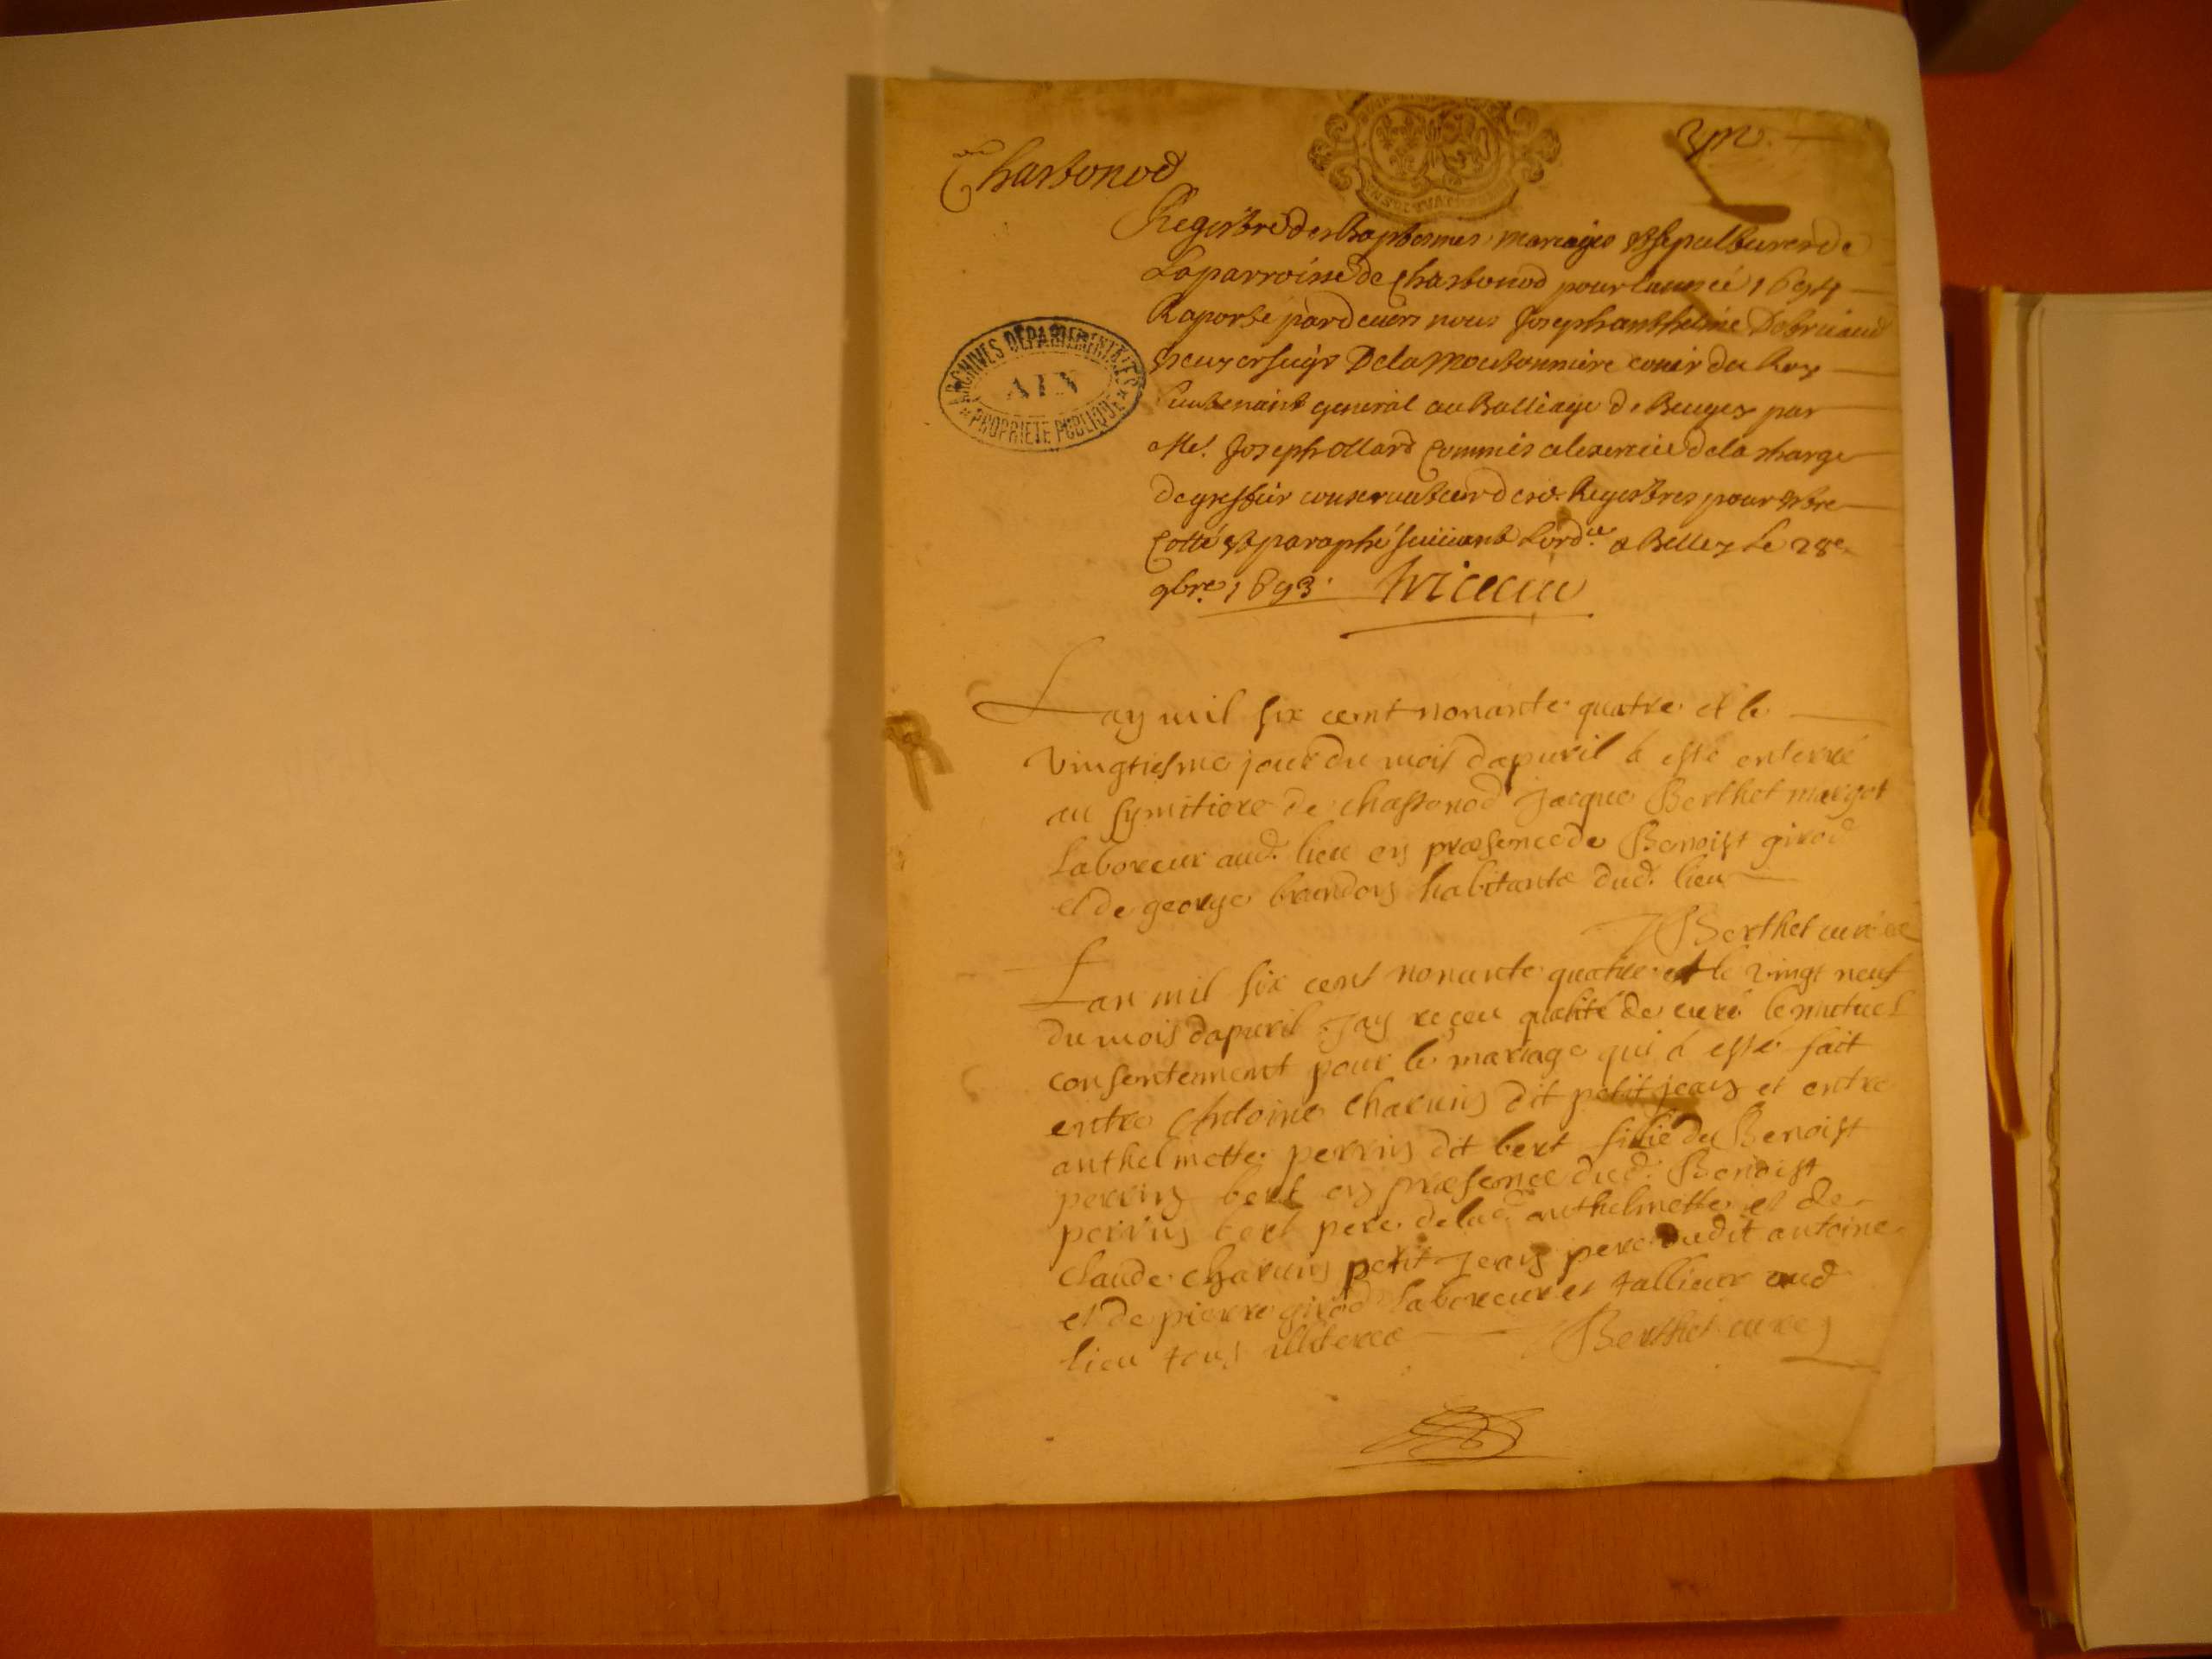 Chastonod
Registre des Baptesmes mariages et sepultures de
La parroisse de Chastonod pour lannée 1694
Raporte pardeuers nous Joseph anthelme Debriaud
Escuyer seigr De la Moutonniere coner du Roy
Lieutenant general au Balliage de Beugey par
Me. Joseph ollard Commis a lexercice de la charge
de greffier conseruateur desd. Registres pour estre
Cotté et paraphé suiuant Lord.ce a Belley Le 28e
9bre 1693.
ARCHIVES DEPARTEMENTALES
AIN
PROPRIETE PUBLIQUE
Lan mil six cent nonante quatre et le
vingtiesme jour du mois dapuril à esté enterré
au symitiere de chastonod Jacque Berthet margot
Laboreur aud. lieu en præsence de Benoist girod
et de george brandon habitants dud. lieu
Berthet curé
Lan mil six cent nonante quatre et le vingt neuf
du mois dapuril Jay reçeu qualité de curé le mutuel
consentement pour le mariage qui à esté fait
entre Antoine Charuin dit petit jean et entre
anthelmette perrin dit bert fillie de Benoist
perrin bert en præsence dud. Benoist
perrin bert pere de lad. anthelmette et de
Claude Charuin petit Jean pere dudit antoine
et de pierre girod Laboreur et tallieur aud
lieu tous illiteres Berthet curé